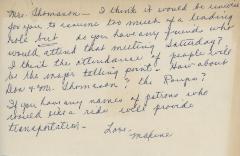 Mrs. Thomason - I think it would be unwise
for you to assume too much of a leading
role but do you have any friends who
would attend that meeting Saturday?
I think the attendance of people will
be the major telling point! How about
Don & Mr. Thomason, ? the Roups?
If you have any names of patrons who
would need a ride will provide
transportation.
Love,
Maxine